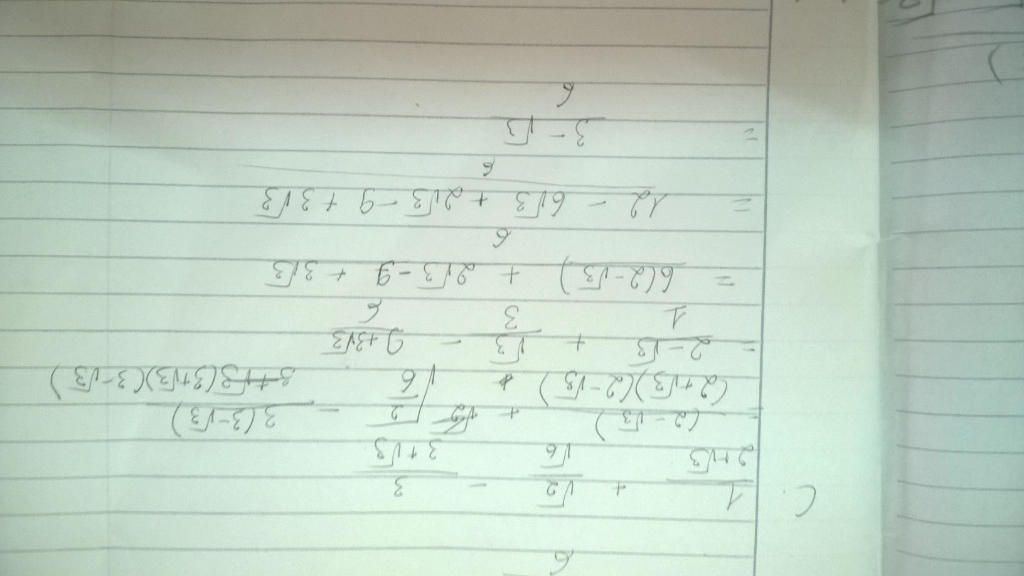 6
C. 1 + √2 - 3
2+√3 √6 3+√3
= (2-√3) + √2 - 3(3-√3)
(2+√3)(2-√3) 6 (3+√3)(3-√3)
= 2-√3 + √3 - 9+3√3
1 3 6
= 6(2-√3) + 2√3 - 9 + 3√3
6
= 12 - 6√3 + 2√3 - 9 + 3√3
6
= 3-√3
6